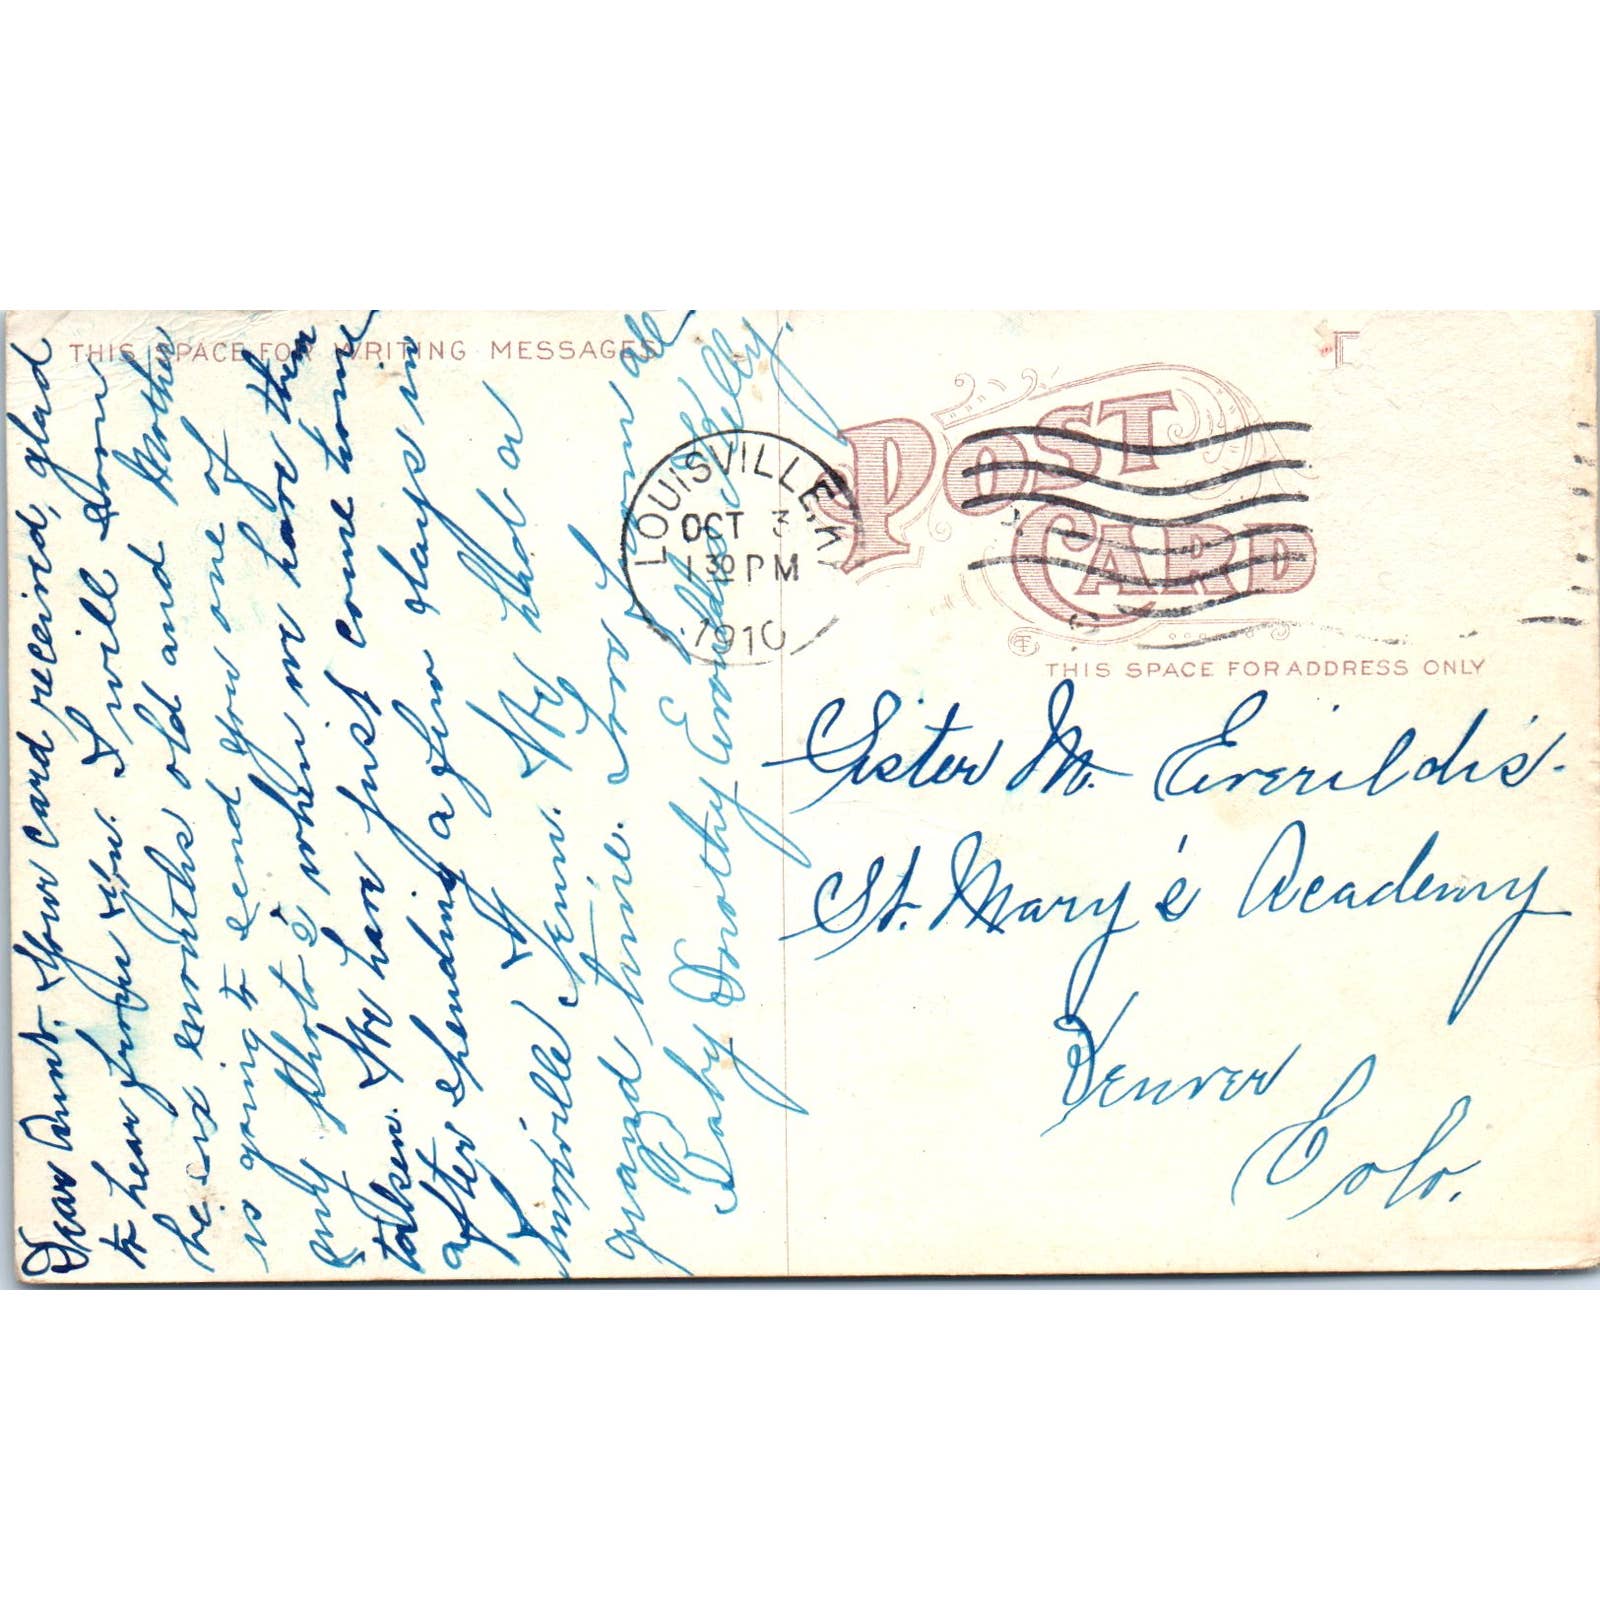 Dear Aunt. Your card received, glad
to hear from you. I will soon
be six months old and Mother
is going to send you one of
my photo's when we have them
taken. We have just come home
after spending a few days in
Tenn. We had a
grand time. Love from all
Baby Dorothy
THIS SPACE FOR WRITING MESSAGES
LOUISVILLE, KY
OCT 3
1 30 PM
1910
POST CARD
THIS SPACE FOR ADDRESS ONLY
Sister M. Everildis.
St. Mary's Academy
Denver
Colo.